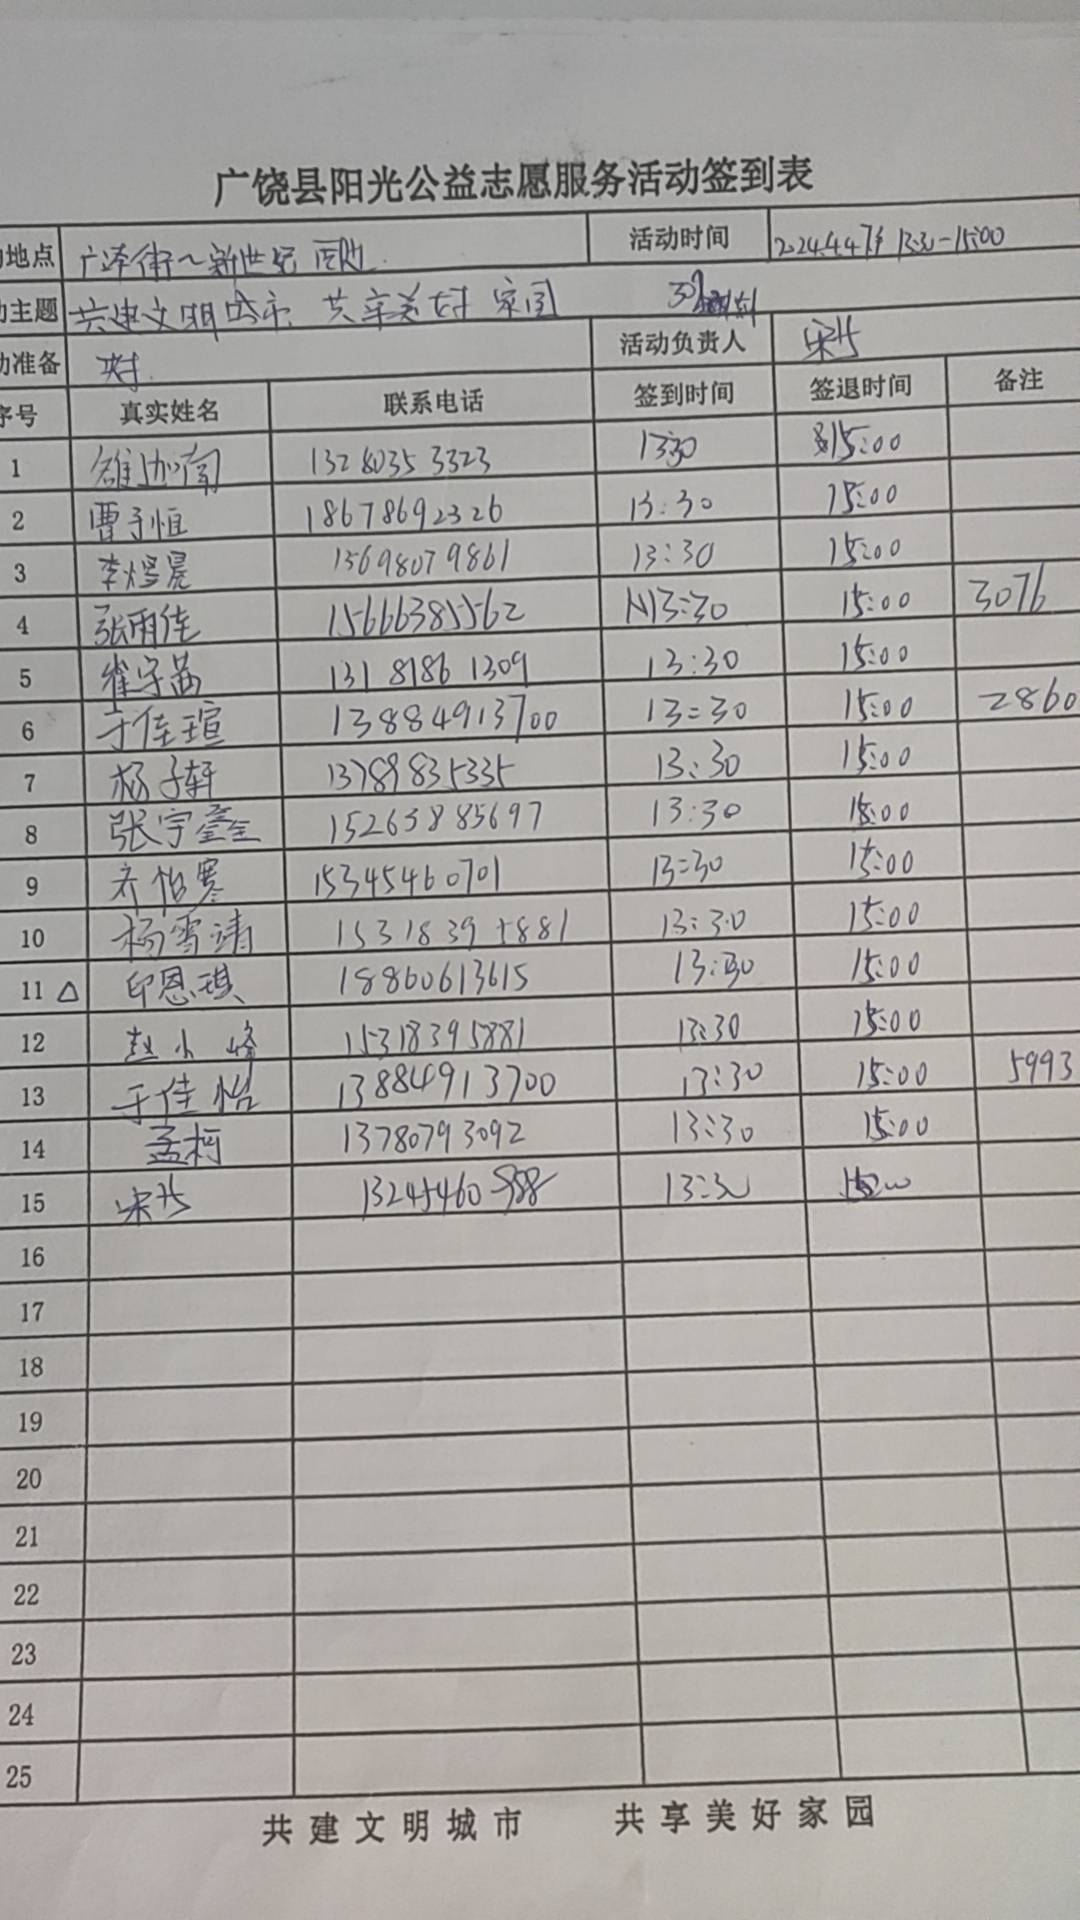 广饶县阳光公益志愿服务活动签到表
地点 广泽街~新世纪 活动时间 13:30-15:00
主题 共建文明城市 共享美好家园
准备 活动负责人
序号 真实姓名 联系电话 签到时间 签退时间 备注
1 13280353323 13:30 15:00
2 曹子恒 18678692326 13:30 15:00
3 李煜晨 15698079861 13:30 15:00
4 张雨佳 15666385562 13:30 15:00 3076
5 崔字菡 13181861309 13:30 15:00
6 于佳瑄 13884913700 13:30 15:00 2860
7 杨子轩 13789835335 13:30 15:00
8 张宇鑫 15263885697 13:30 15:00
9 齐怡寒 15345460701 13:30 15:00
10 杨雪靖 13:30 15:00
11 △ 印恩琪 18860613615 13:30 15:00
12 赵小峰 15318395881 13:30 15:00
13 于佳怡 13884913700 13:30 15:00 5993
14 孟柯 13780793092 13:30 15:00
15 13:30
16
17
18
19
20
21
22
23
24
25
共建文明城市 共享美好家园